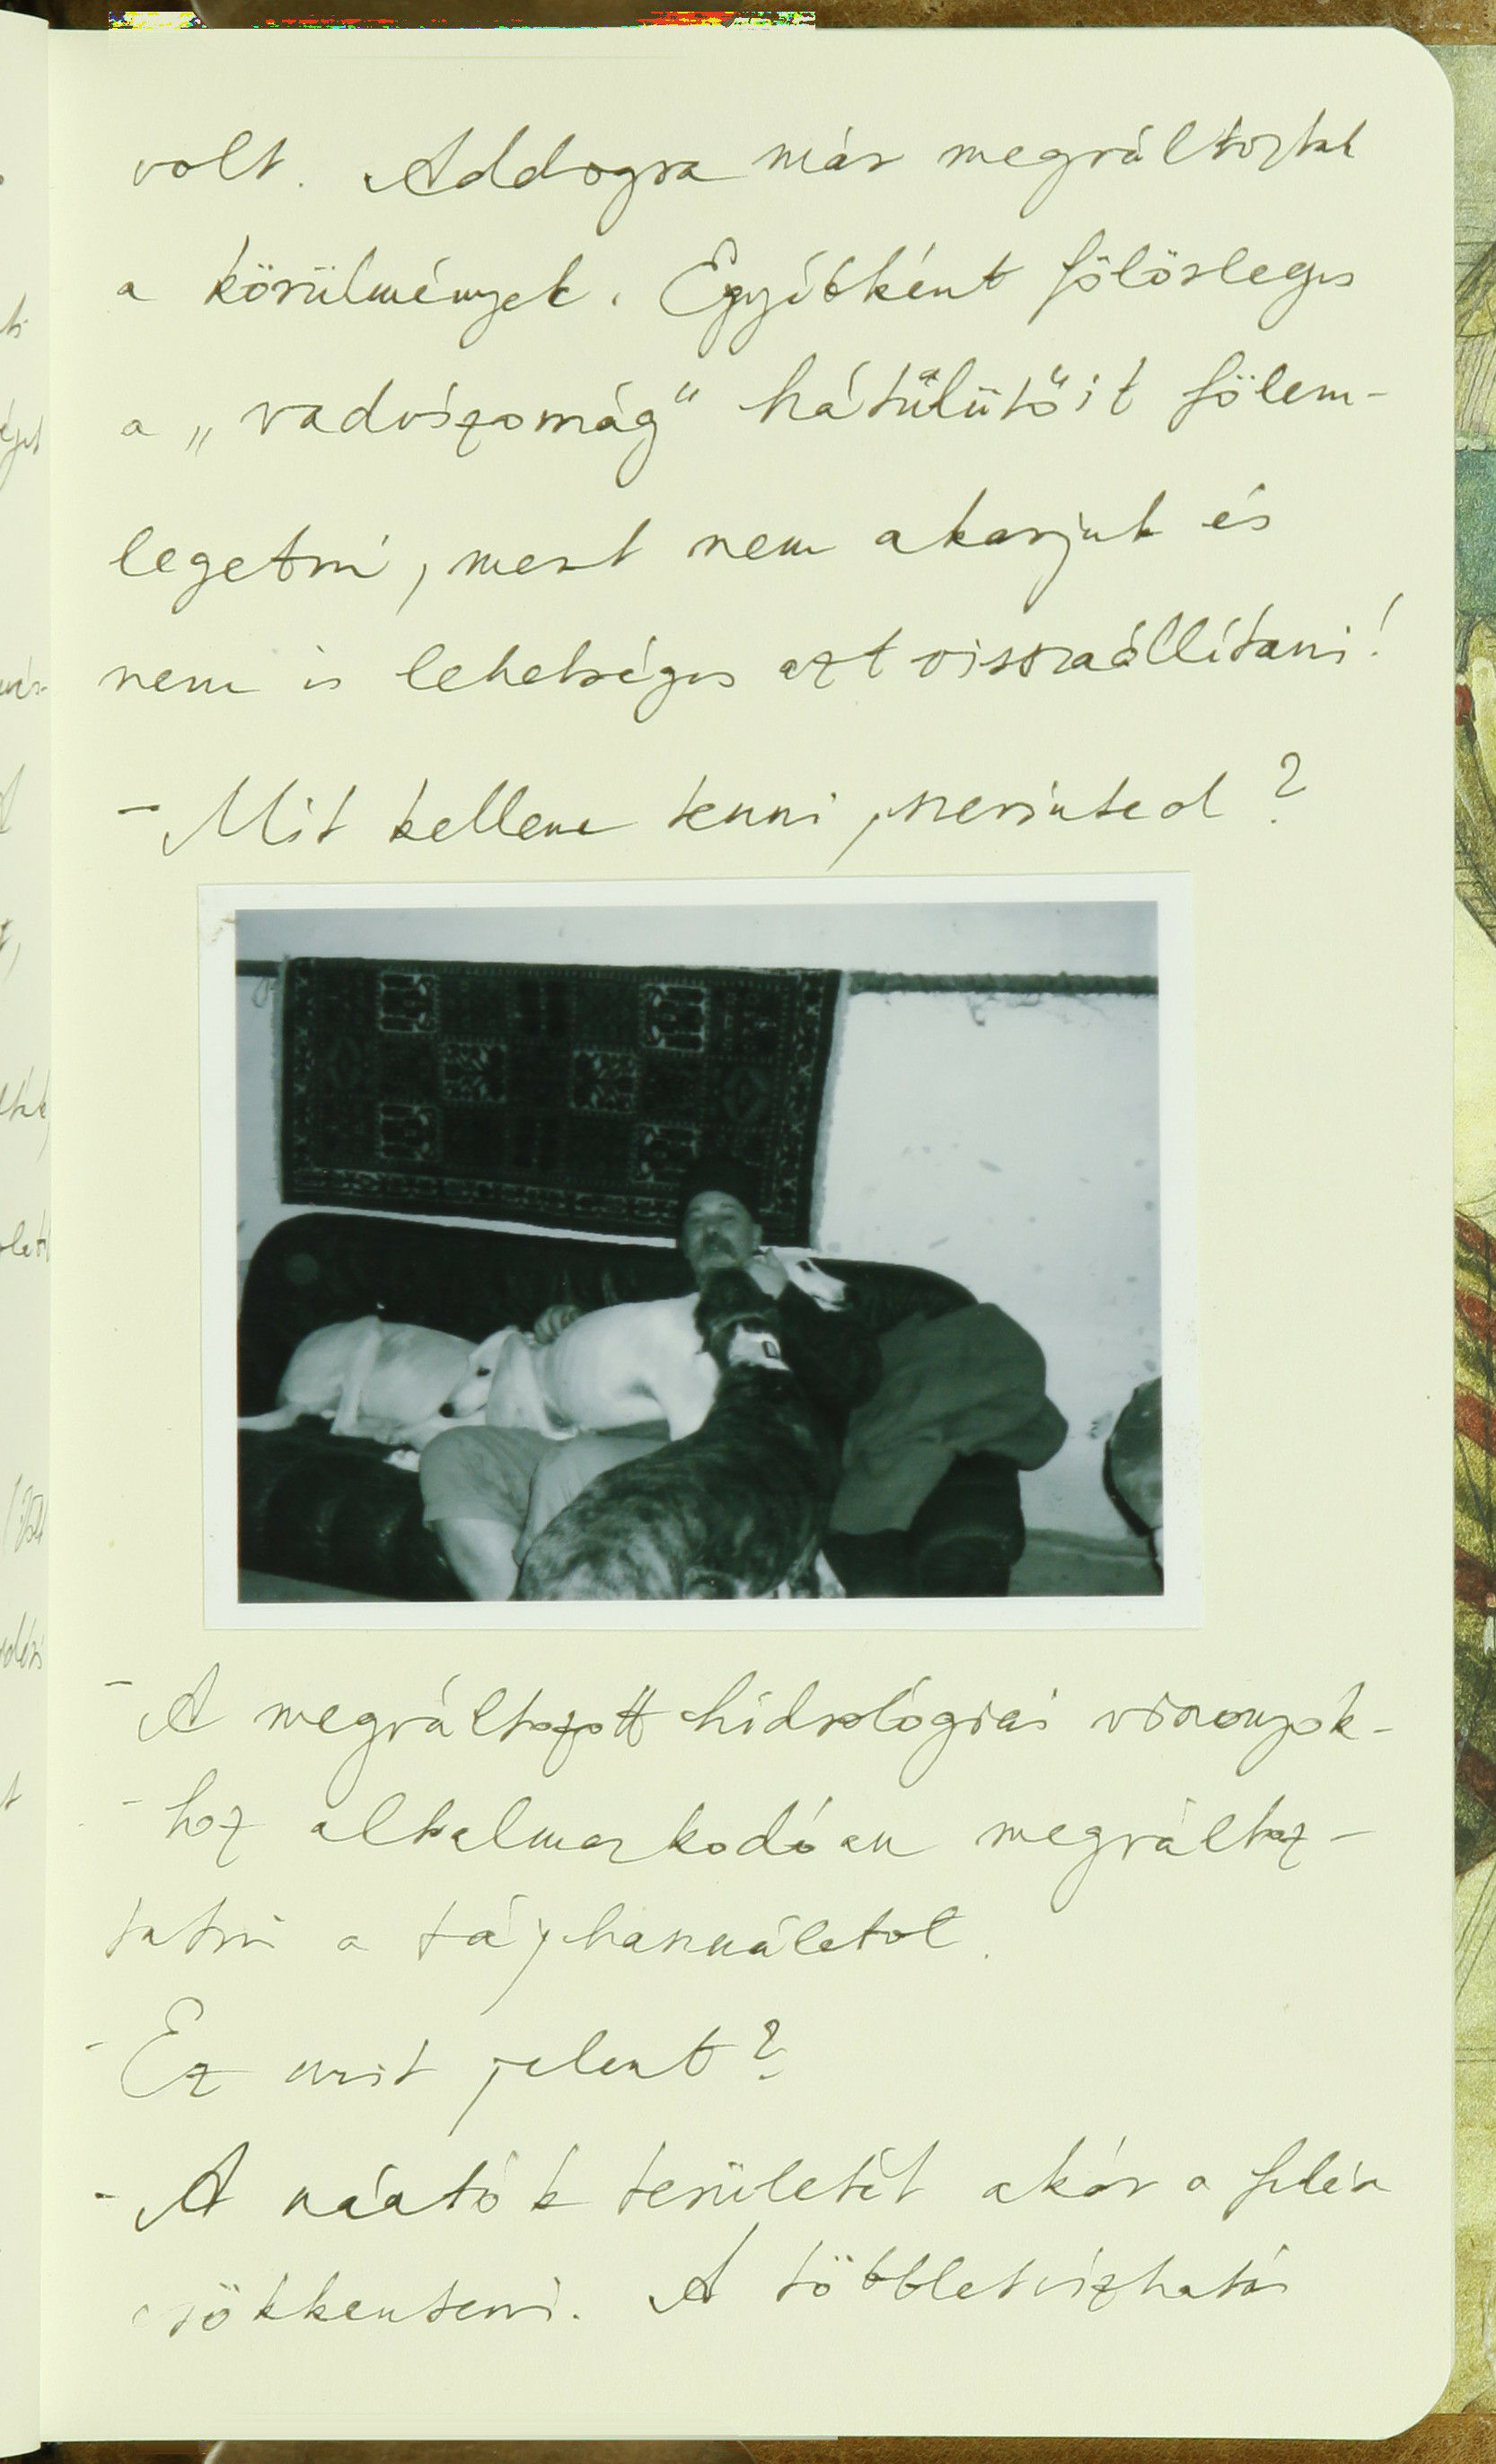 volt. Addogra már megváltoztak
a körülmények. Egyébként fölösleges
a „vadvízország" hátulütőit fölem-
legetni, mert nem akarjuk és
nem is lehetséges azt visszaállítani!
- Mit kellene tenni szerinted?
- A megváltozott hidrológiai viszonyok-
- hoz alkalmazkodóan megváltoz-
tatni a tájhasználatot.
- Ez mit jelent?
- A szántók területét akár a felére
csökkenteni. A többletvízhatás